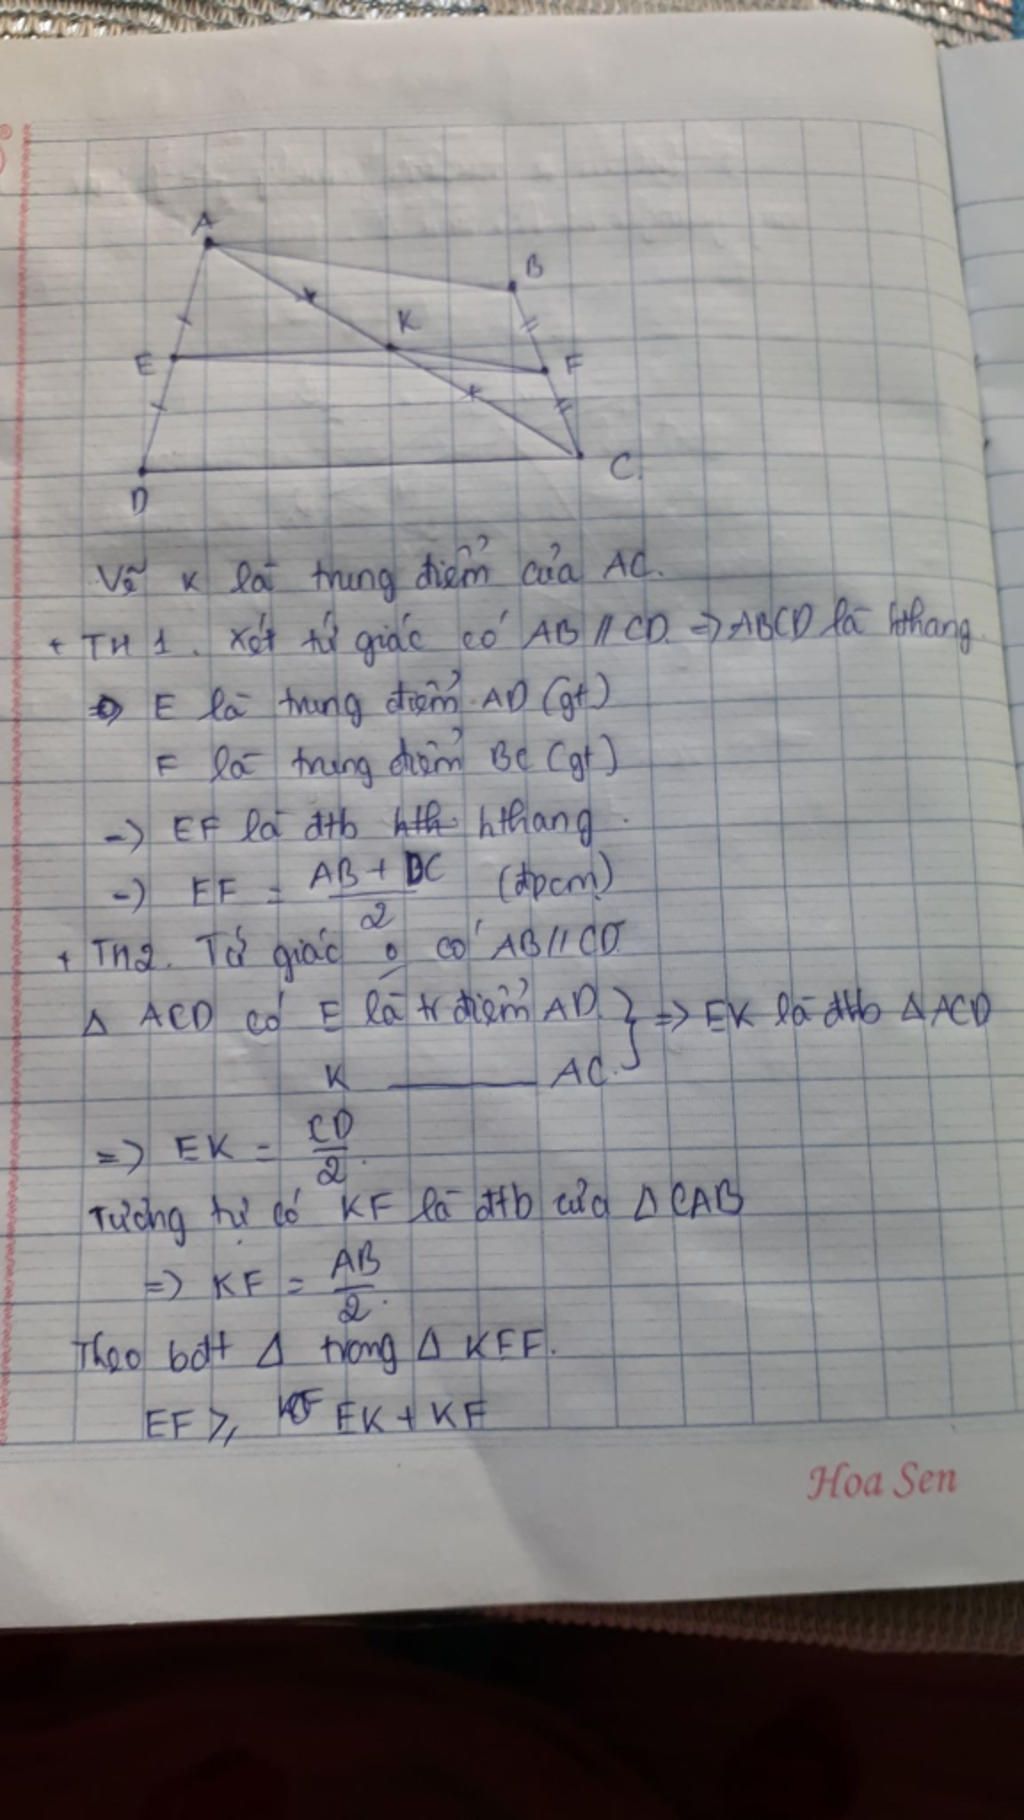 A
B
K
E
F
C.
D
Vẽ K là trung điểm của AC.
+ TH 1. Xét tứ giác có AB // CD. => ABCD là hthang.
E là trung điểm AD (gt)
F là trung điểm BC (gt)
-> EF là đtb hthang.
-> EF = AB + DC / 2 (đpcm)
+ TH2. Tứ giác o có AB // CD
Δ ACD có E là tr điểm AD. } => EK là đtb Δ ACD
K ——— AC.
=> EK = CD / 2.
Tương tự có KF là đtb của Δ CAB
=> KF = AB / 2.
Theo bđt Δ trong Δ KEF.
EF ⩾ EK + KF
Hoa Sen